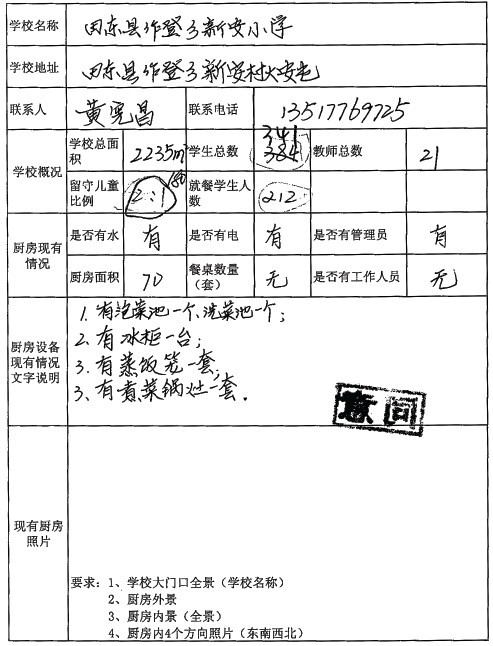 学校名称 田东县作登乡新安小学
学校地址 田东县作登乡新安村火安屯
联系人 黄宪昌 联系电话 13517769725
学校概况 学校总面积 2235m² 学生总数 341 384 教师总数 21
留守儿童比例 2:1 就餐学生人数 212
厨房现有情况 是否有水 有 是否有电 有 是否有管理员 有
厨房面积 70 餐桌数量（套） 无 是否有工作人员 无
厨房设备现有情况文字说明
1. 有泡菜池一个、洗菜池一个；
2. 有冰柜一台；
3. 有蒸饭笼一套；
3、有煮菜锅灶一套.
意同
现有厨房照片
要求：1、学校大门口全景（学校名称）
2、厨房外景
3、厨房内景（全景）
4、厨房内4个方向照片（东南西北）